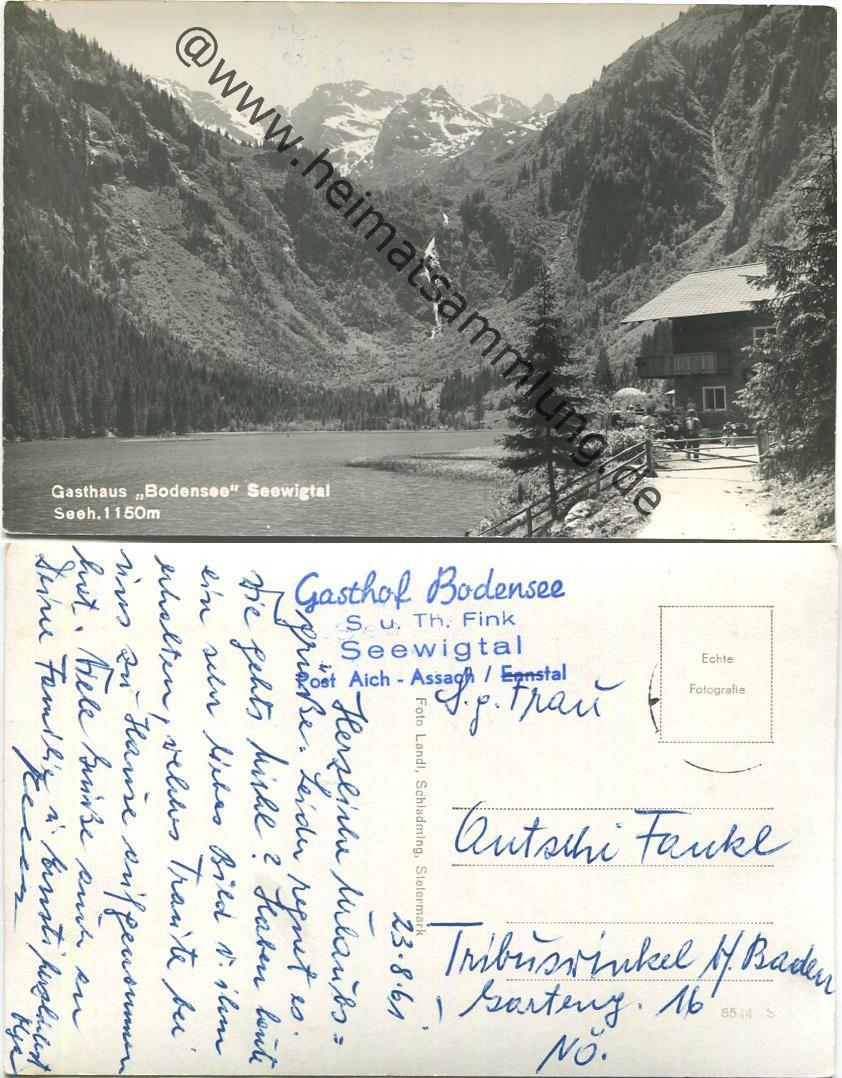 @www.heimatsammlung.de
Gasthaus „Bodensee" Seewigtal
Seeh. 1150m
Gasthof Bodensee
S. u. Th. Fink
Seewigtal
Post Aich - Assach / Ennstal
Echte
Fotografie
S. g. Frau
Antschi Fankl
Tribuswinkel b/ Baden
Garteng. 16
NÖ.
8544 S
Foto Landl, Schladming, Steiermark
23.8.61
Herzliche Urlaubs=
grüße. Leider regnet es.
Wie gehts Michl? Haben heute
ein sehr liebes Bild v. ihm
erhalten, welches Traute bei
uns zu Hause aufgenommen
hat. Viele Grüße auch an
Deine Familie u.